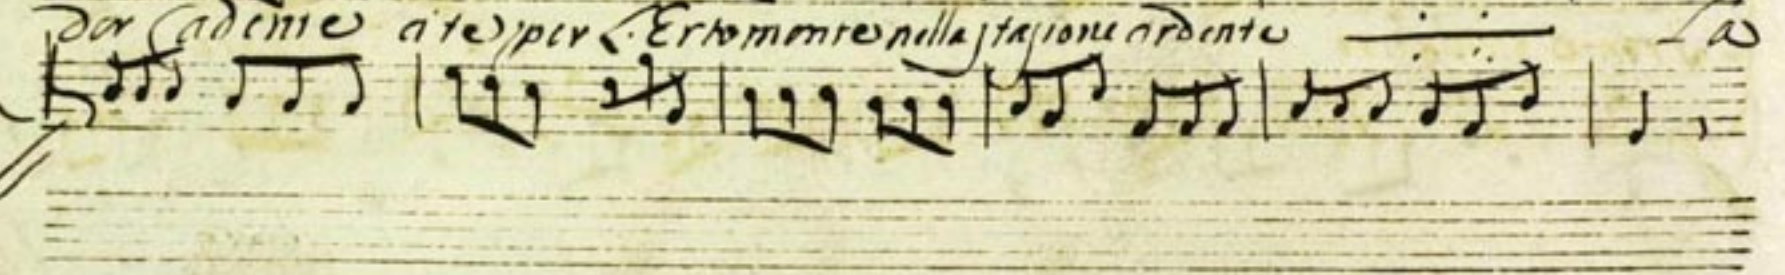 dor Cadente a te per L'Erto monte nella stagione ardente La